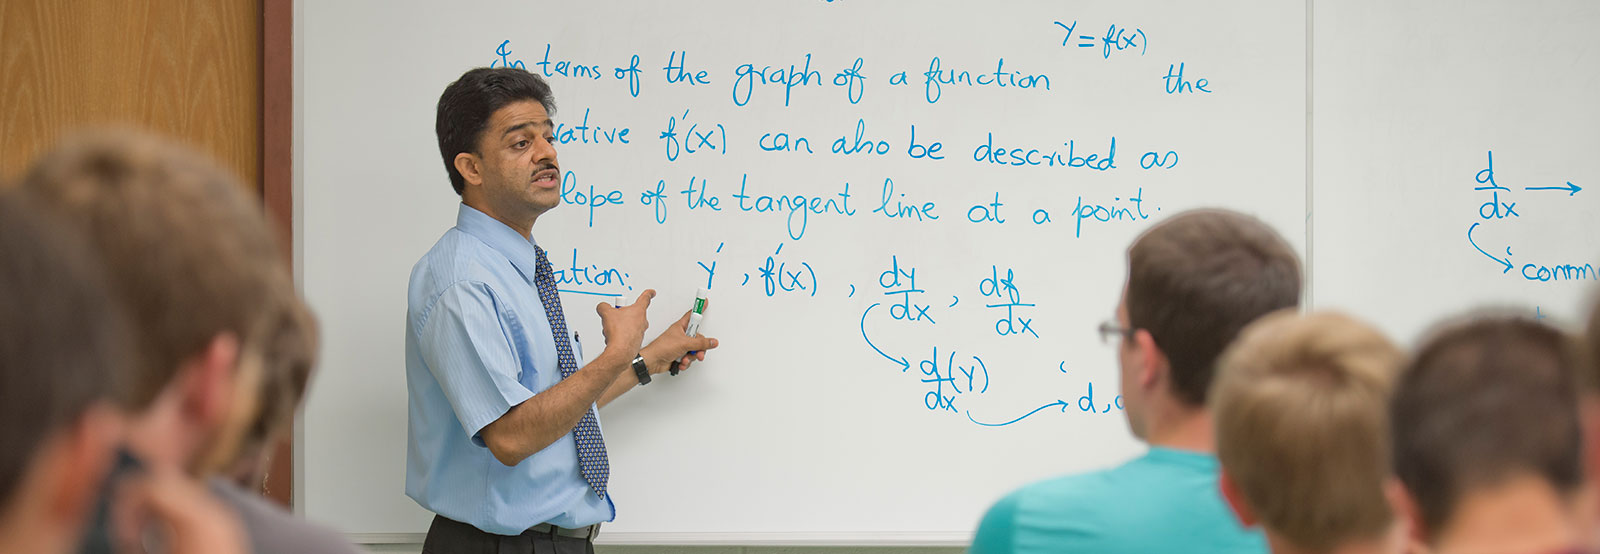 Y = f(x)
In terms of the graph of a function the
vative f'(x) can also be described as
lope of the tangent line at a point.
ation: Y' , f'(x) , dy/dx , df/dx
d/dx (Y) → d,
d/dx →
comm